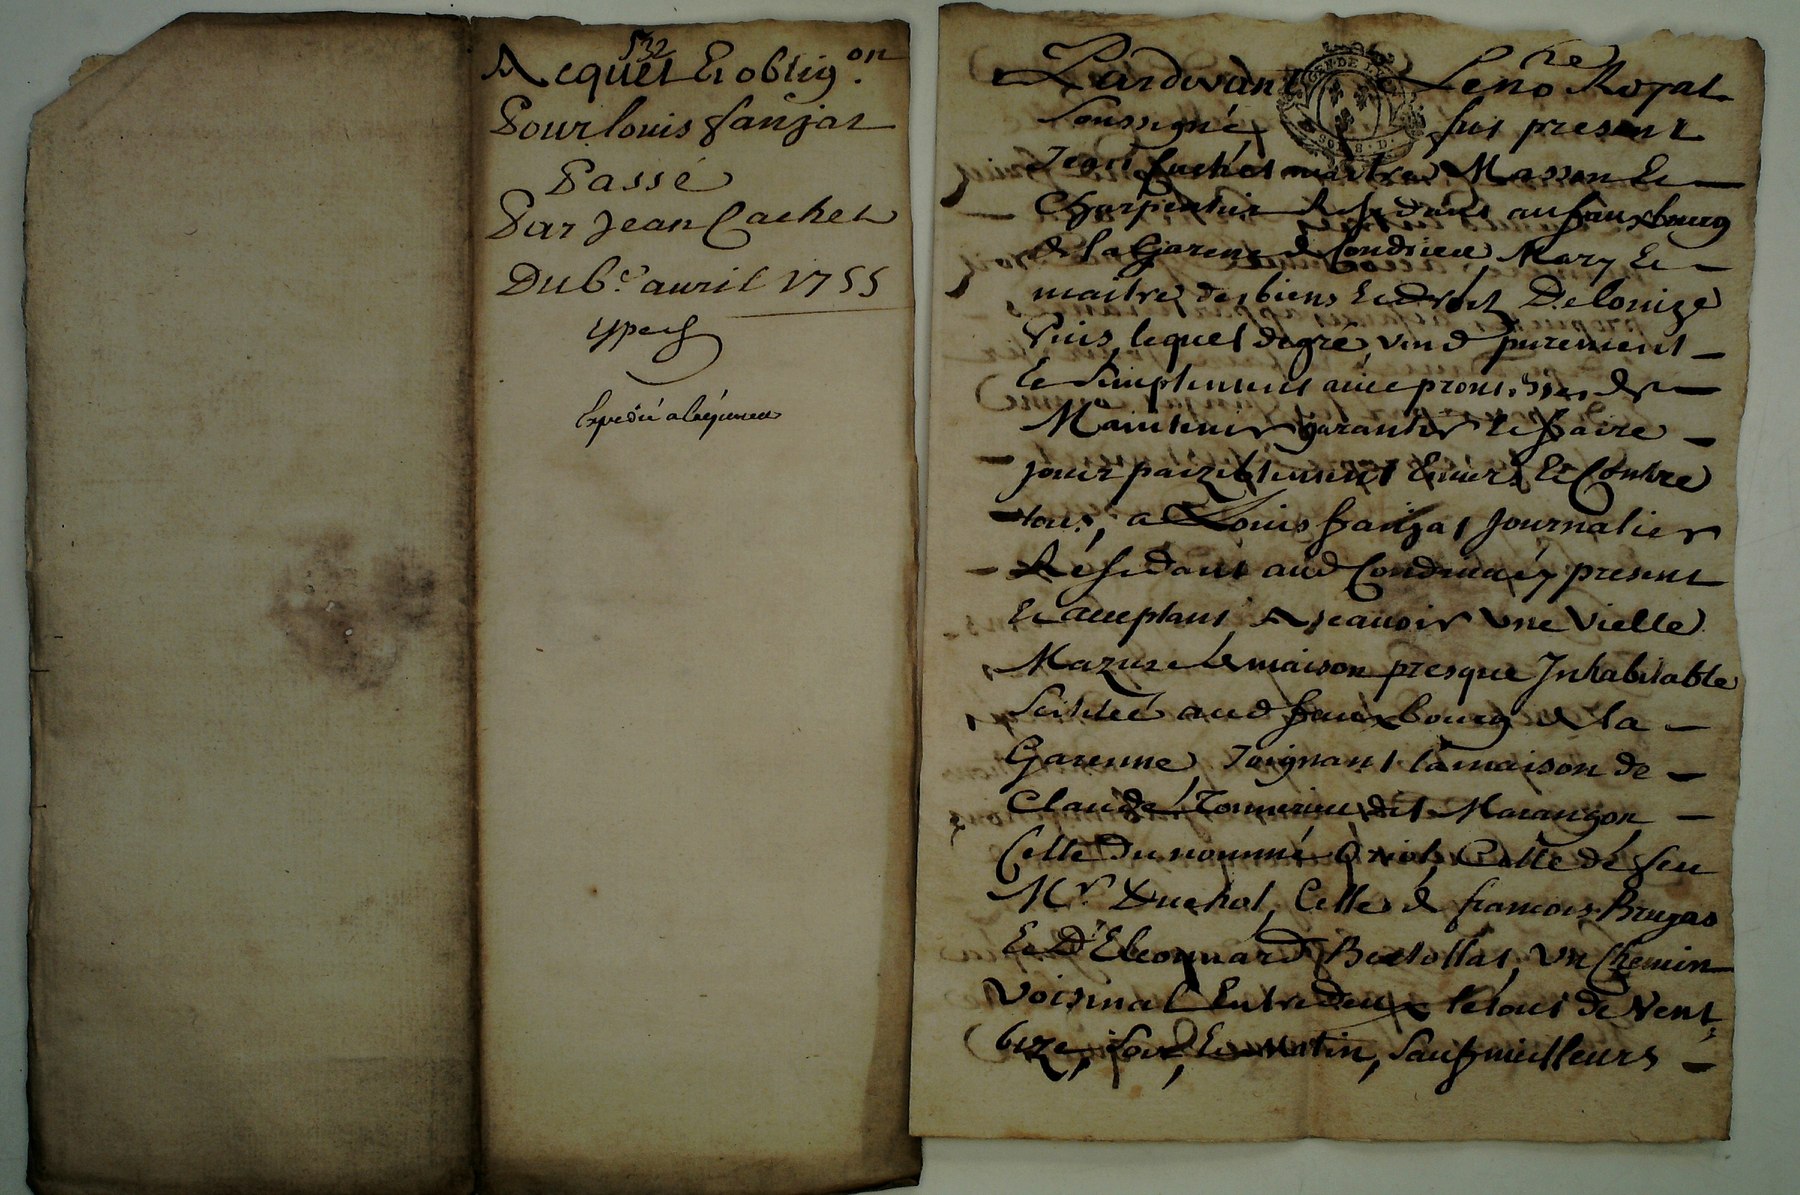 532
Acquet Et oblig.on
Pour louis fanjat
Passé
Par Jean Cachet
Du 6e avril 1755
Expedié
Pardevant Le no.re Royal
Soussigné fut present
Jean Cachet maitre Masson Et
Charpentier Residant au fauxbourg
de la Garenne de Condrieu Mary Et
maitre des biens Et droits De louize
Puis, lequel de gré, vend purement
Et Simplement avec promesses de
Maintenir garantir Et faire
jouir paiziblement Envers Et Contre
tous, a Louis fanjat Journalier
Résidant aud Condrieu, present
Et acceptant Ascavoir une vielle
Mazure de maison presque Inhabitable
Scituée aud fauxbourg de la
Garenne, Joignant la maison de
Claude dit Marangon
Celle du nommé Celle de feu
Mr. Duchol, Celle de francois Brujas
Et D'Eleonnard Bertollat, un Chemin
voisinal Entredeux le tout de vent,
bize, soir, Et matin, Sauf meilleurs